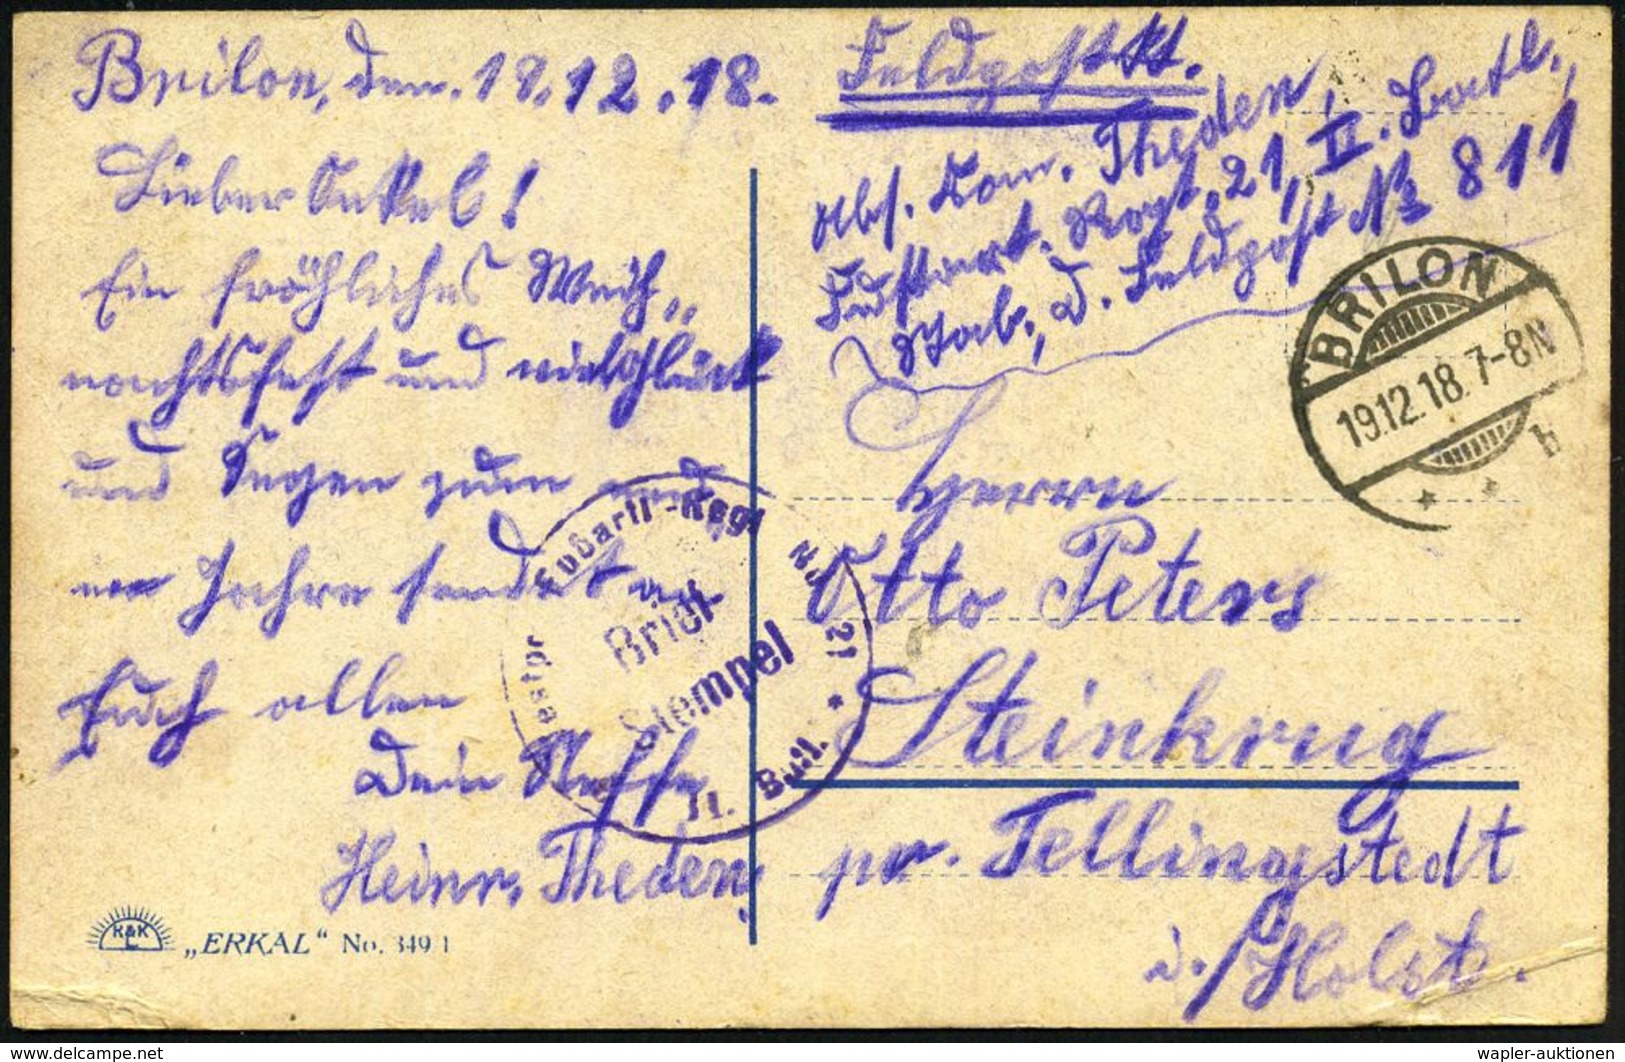 Brilon, den. 18.12.18.
Lieber Onkel!
Ein fröhliches Weih„
nachtsfest und viel Glück
und Segen zum neu
en Jahre sendet an
Euch allen
Dein Neffe
Heinr. Theden,
K&K
L
„ERKAL“ No. 349 1
Feldpostkt.
Abs. Kan. Theden,
Fußart. Regt. 21, II. Batl.,
Stab, D. Feldpost No 811
BRILON
19.12.18. 7-8N
* * b
Westpr Fußartl-Regt No 21 *
Brief
Stempel
II. Batl.
Herrn
Otto Peters
Steinkrug
pr. Tellingstedt
i./Holst.
wapler-auktionen
https://www.delcampe.net